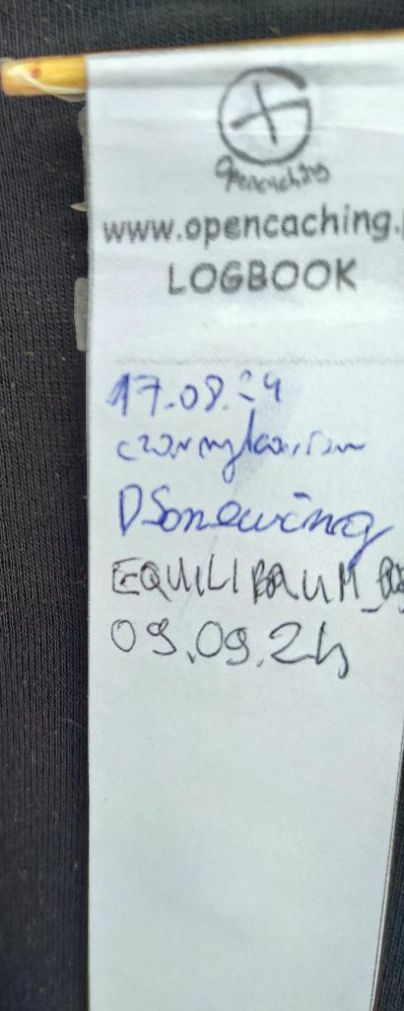 Opencaching
www.opencaching.
LOGBOOK
17.08.24
DSonewing
EQUILIBRIUM_
09.09.24